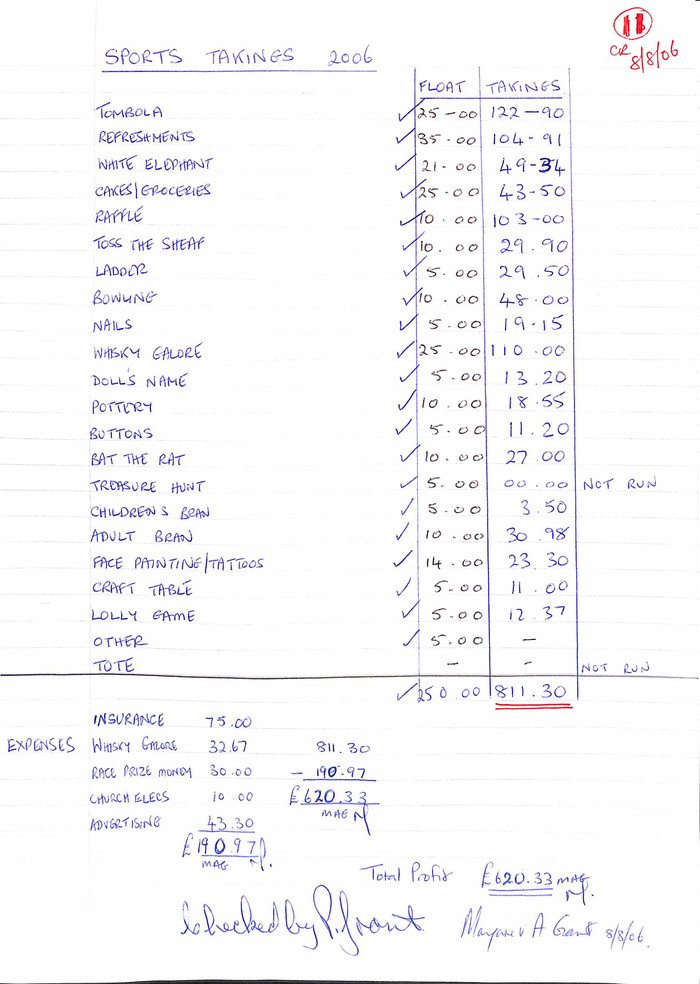 11
CR
8/8/06
SPORTS TAKINGS 2006
FLOAT TAKINGS
TOMBOLA ✓ 25-00 122-90
REFRESHMENTS ✓ 35.00 104-91
WHITE ELEPHANT ✓ 21.00 49-34
CAKES/GROCERIES ✓ 25.00 43-50
RAFFLE ✓ 10.00 103-00
TOSS THE SHEAF ✓ 10.00 29.90
LADDER ✓ 5.00 29.50
BOWLING ✓ 10.00 48.00
NAILS ✓ 5.00 19.15
WHISKY GALORE ✓ 25.00 110.00
DOLL'S NAME ✓ 5.00 13.20
POTTERY ✓ 10.00 18.55
BUTTONS ✓ 5.00 11.20
BAT THE RAT ✓ 10.00 27.00
TREASURE HUNT ✓ 5.00 00.00 NOT RUN
CHILDRENS BRAN ✓ 5.00 3.50
ADULT BRAN ✓ 10.00 30.98
FACE PAINTING/TATTOOS ✓ 14.00 23.30
CRAFT TABLE ✓ 5.00 11.00
LOLLY GAME ✓ 5.00 12.37
OTHER ✓ 5.00 -
TOTE - - NOT RUN
✓ 250.00 811.30
INSURANCE 75.00
EXPENSES WHISKY GALORE 32.67 811.30
RACE PRIZE MONEY 30.00 - 190.97
CHURCH ELECS 10.00 £620.33
ADVERTISING 43.30 MAG
£190.97
MAG
Total Profit £620.33 MAG
Checked by P. Grant Margaret A Grant 8/8/06.